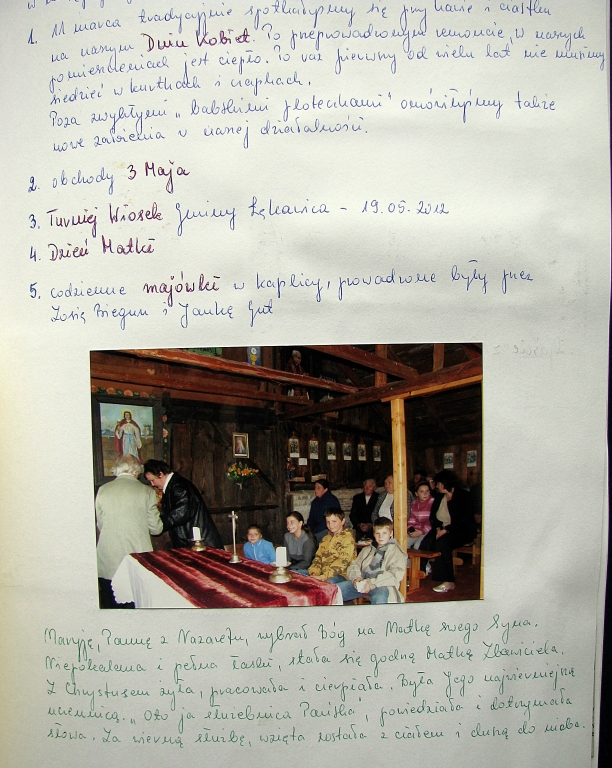 1. 11 marca tradycyjnie spotkałyśmy się przy kawie i ciastku
na naszym Dniu Kobiet. Po przeprowadzonym remoncie, w naszych
pomieszczeniach jest ciepło. Po raz pierwszy od wielu lat nie musimy
siedzieć w kurtkach i czapkach.
Poza zwykłymi „babskimi ploteczkami" omówiłyśmy także
nowe zadania w naszej działalności.
2. obchody 3 Maja
3. Turniej Wiosek Gminy Łękawica - 19.05.2012
4. Dzień Matki
5. codzienne majówki w kaplicy, prowadzone były przez
Zosię Biegun i Jankę Gut
Maryję, Pannę z Nazaretu, wybrał Bóg na Matkę swego Syna.
Niepokalana i pełna łaski, stała się godną Matką Zbawiciela.
Z Chrystusem żyła, pracowała i cierpiała. Była Jego najwierniejszą
uczennicą. „Oto ja służebnica Pańska", powiedziała i dotrzymała
słowa. Za wierną służbę, wzięta została z ciałem i duszą do nieba.